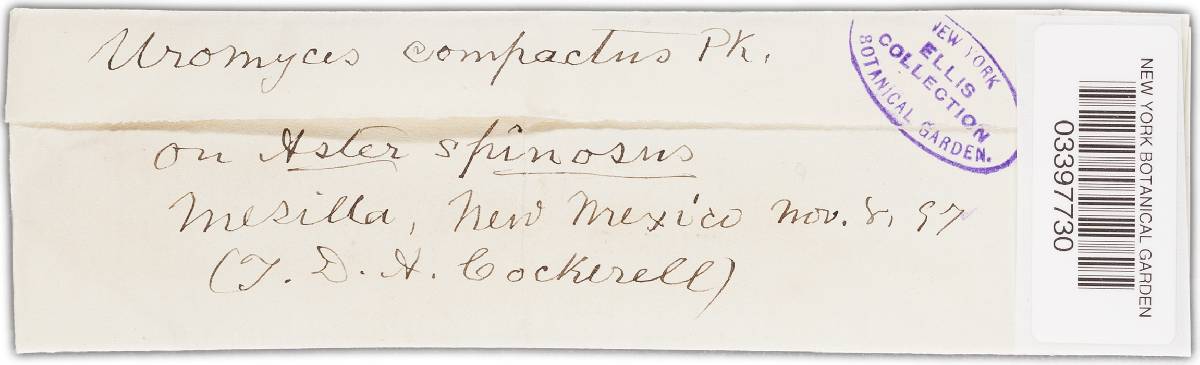 Uromyces compactus PK.
on Aster spinosus
Mesilla, New Mexico Nov. 8, 97
(T. D. A. Cockerell)
NEW YORK
ELLIS
COLLECTION
BOTANICAL GARDEN.
NEW YORK BOTANICAL GARDEN
03397730